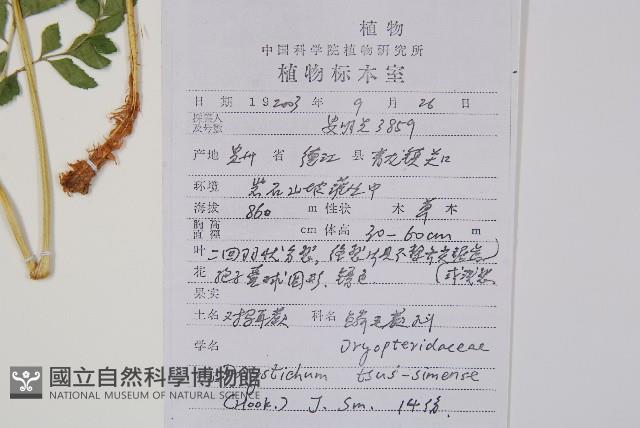 植物
中国科学院植物研究所
植物标本室
日期 19 2003 年 9 月 26 日
採集人
及号数 3859
产地 贵州 省 德江 县
环境 岩石山坡灌丛中
海拔 860 m 性状 木 草 本
胸高
直徑 cm 体高 30-60cm m
叶 二回羽状分裂,
花 孢子囊球圆形, 锈色
果实
土名 对马耳蕨 科名 鳞毛蕨科
学名 Dryopteridaceae
Polystichum tsus-simense
(Hook.) J. Sm. 14份.
國立自然科學博物館
NATIONAL MUSEUM OF NATURAL SCIENCE